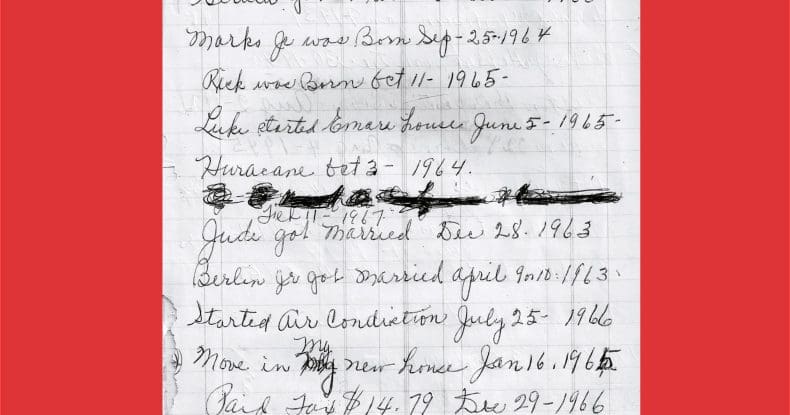 Marks Jr was Born Sep-25-1964
Rick was Born Oct 11- 1965-
Luke started Emars house June 5-1965-
Huracane Oct 3- 1964.
Feb 11-1967.
Jude got Married Dec 28. 1963
Berlin Jr got Married April 9 or 10.1963.
Started Air Condiction July 25- 1966
Move in My new house Jan 16.1965
Paid Tax $14.79 Dec 29-1966